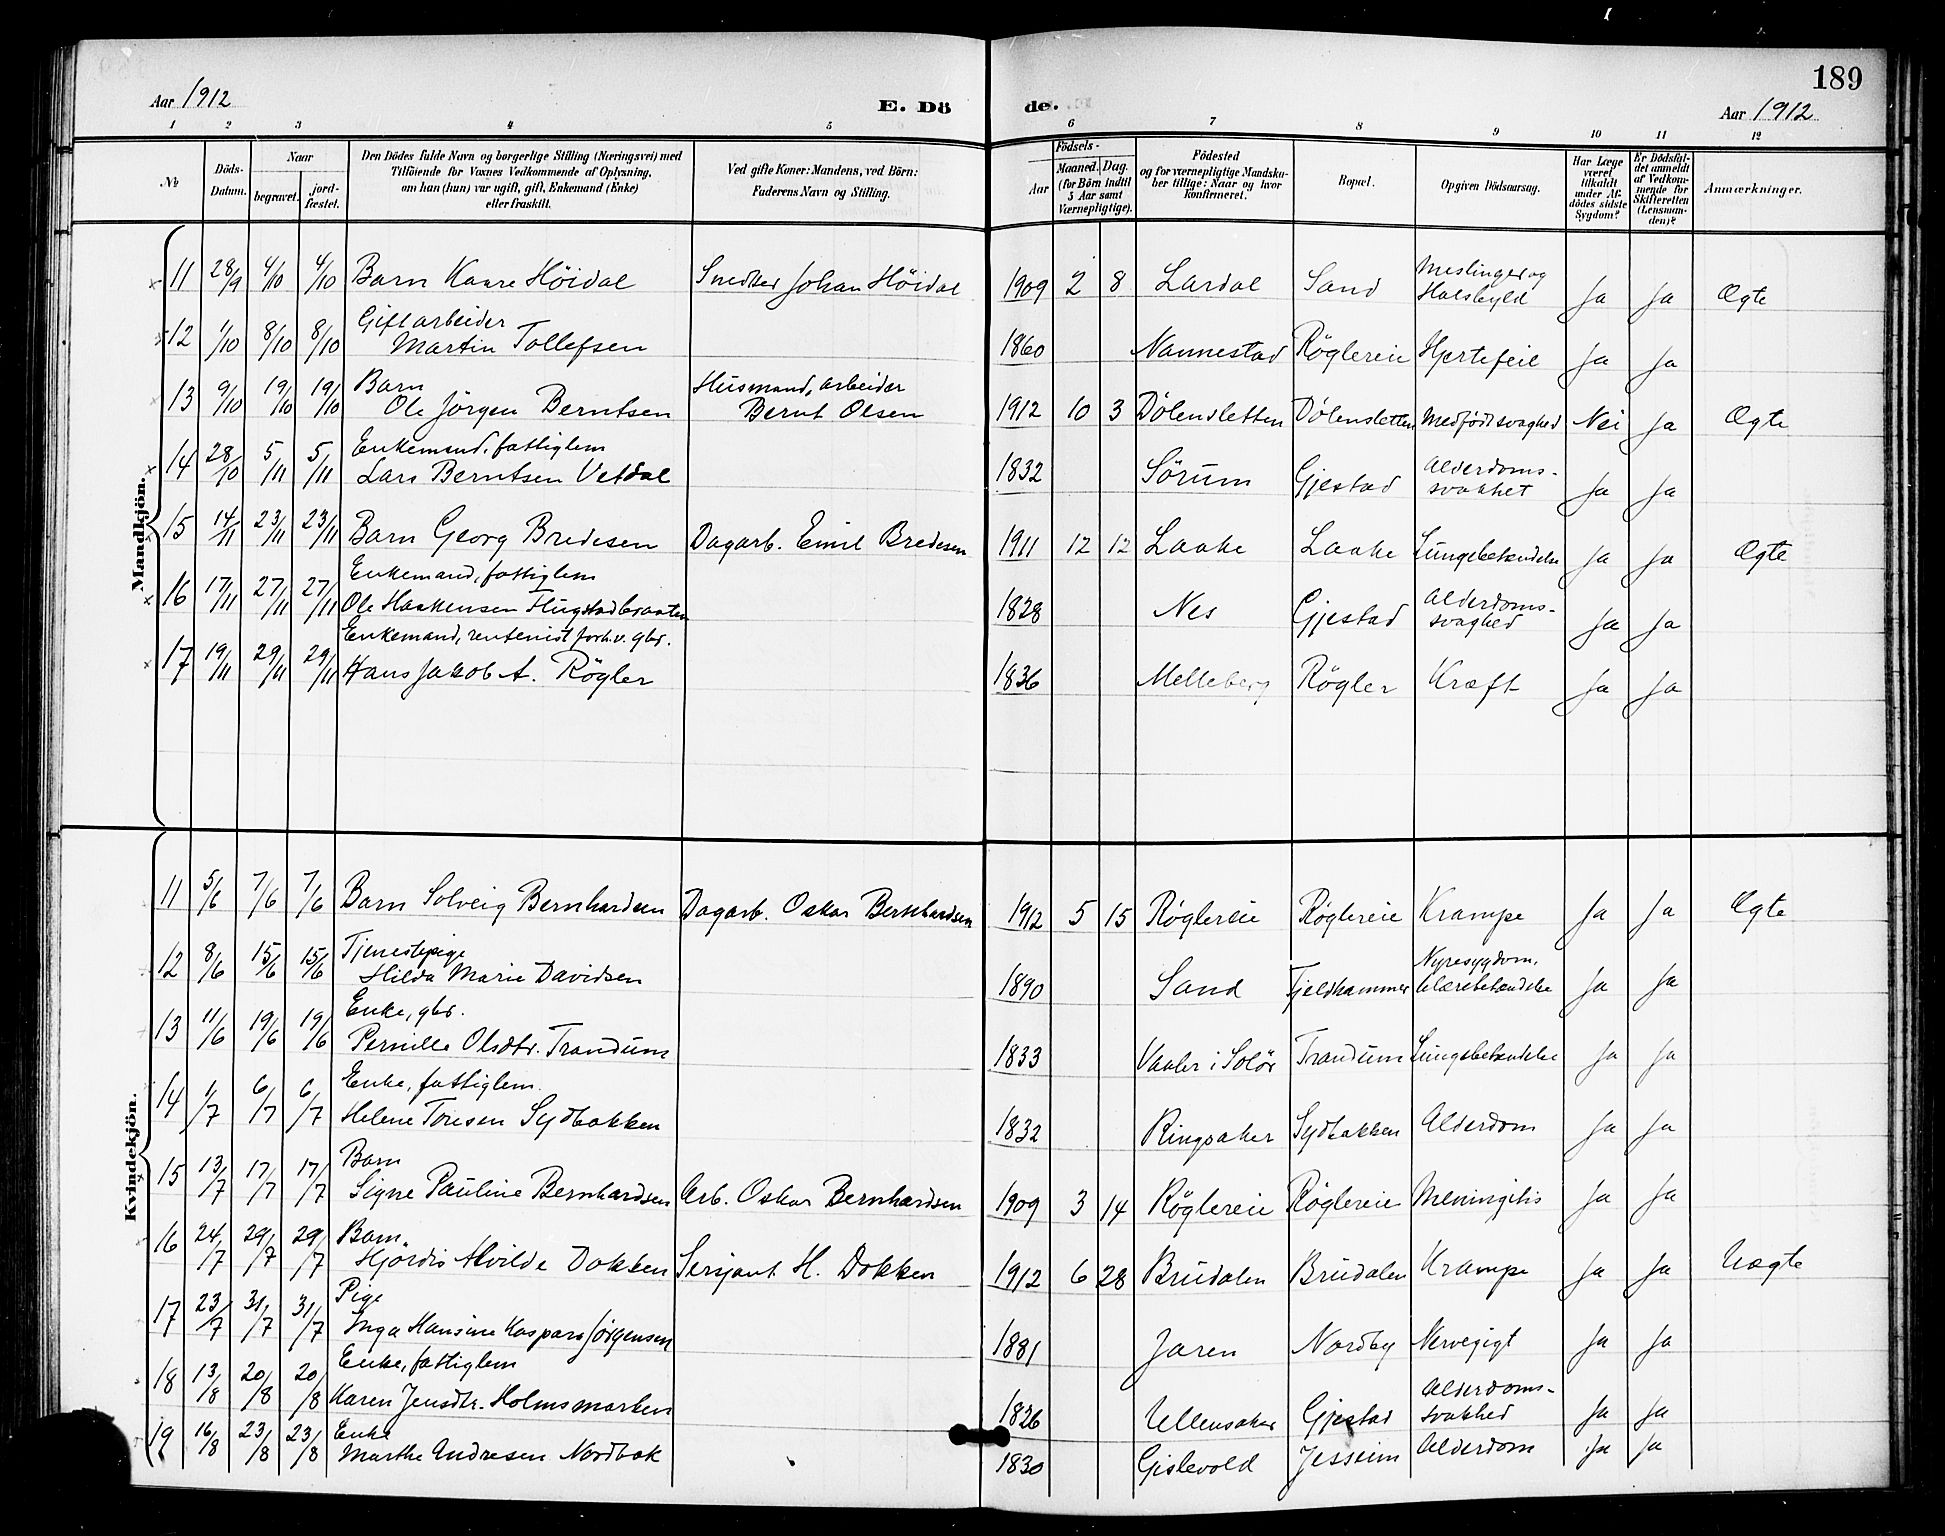 189
Aar 1912 E. Dö de. Aar 1912
1 2 3 4 5 6 7 8 9 10 11 12
№ Döds-Datum. Naar begravet. jord-fæstet. Den Dödes fulde Navn og borgerlige Stilling (Næringsvei) med Tilföiende for Voxnes Vedkommende af Oplysning, om han (hun) var ugift, gift, Enkemand (Enke) eller fraskilt. Ved gifte Koner: Mandens, ved Börn: Faderens Navn og Stilling. Födsels- Aar Maaned. Dag. (for Börn indtil 5 Aar samt Værnepligtige). Födested og for værnepligtige Mandskaber tillige: Naar og hvor konfirmeret. Bopæl. Opgiven Dödsaarsag. Har Læge været tilkaldt under Afdödes sidste Sygdom? Er Dödsfaldet anmeldt af Vedkommende for Skifteretten (Lensmanden)? Anmærkninger.
Mandkjön.
11 28/9 4/10 4/10 Barn Kaare Höidal Snedker Johan Höidal 1909 2 8 Lardal Sand Meslinger og Halsbyld Ja Ja Ægte
12 1/10 8/10 8/10 Gift arbeider Martin Tollefsen 1860 Nannestad Röglereie Hjertefeil Ja Ja
13 9/10 19/10 19/10 Barn Ole Jörgen Berntsen Husmand, arbeider Bernt Olsen 1912 10 3 Dölensletten Dölensletten Medfödt svaghed Nei Ja Ægte
14 28/10 5/11 5/11 Enkemand, fattiglem Lars Berntsen Vetdal 1832 Sörum Gjestad Alderdoms-svakhet Ja Ja
15 14/11 23/11 23/11 Barn Georg Bredesen Dagarb. Emil Bredesen 1911 12 12 Laake Laake Lungebetændelse Ja Ja Ægte
16 17/11 27/11 27/11 Enkemand, fattiglem Ole Haakensen Hugstadbraaten 1828 Nes Gjestad Alderdoms-svaghed Ja Ja
17 19/11 29/11 29/11 Enkemand, rentenist forh.v. gbr. Hans Jakob A. Rögler 1836 Melleberg Rögler Kræft Ja Ja
Kvindekjön.
11 5/6 7/6 7/6 Barn Solveig Bernhardsen Dagarb. Oskar Bernhardsen 1912 5 15 Röglereie Röglereie Krampe Ja Ja Ægte
12 8/6 15/6 15/6 Tjenestepige Hilda Marie Davidsen 1890 Sand Fjeldhammer Nyresygdom, blærebetændelse Ja Ja
13 11/6 19/6 19/6 Enke, gbr. Pernille Olsdtr. Trandum 1833 Vaaler i Solör Trandum Lungebetændelse Ja Ja
14 1/7 6/7 6/7 Enke, fattiglem. Helene Toresen Sydbakken 1832 Ringsaker Sydbakken Alderdom Ja Ja
15 13/7 17/7 17/7 Barn Signe Pauline Bernhardsen Arb. Oskar Bernhardsen 1909 3 14 Röglereie Röglereie Meningitis Ja Ja
16 24/7 29/7 29/7 Barn Hjördis Alvilde Dokken Sersjant H. Dokken 1912 6 28 Brudalen Brudalen Krampe Ja Ja Uægte
17 23/7 31/7 31/7 Pige Inga Hansine Kaspara Jörgensen 1881 Jaren Nordby Nervegigt Ja Ja
18 13/8 20/8 20/8 Enke, fattiglem Karen Jensdtr. Holmsmarken 1826 Ullensaker Gjestad Alderdoms-svakhed Ja Ja
19 16/8 23/8 23/8 Enke Marthe Andresen Nordbak 1830 Gislevold Jessheim Alderdom Ja Ja